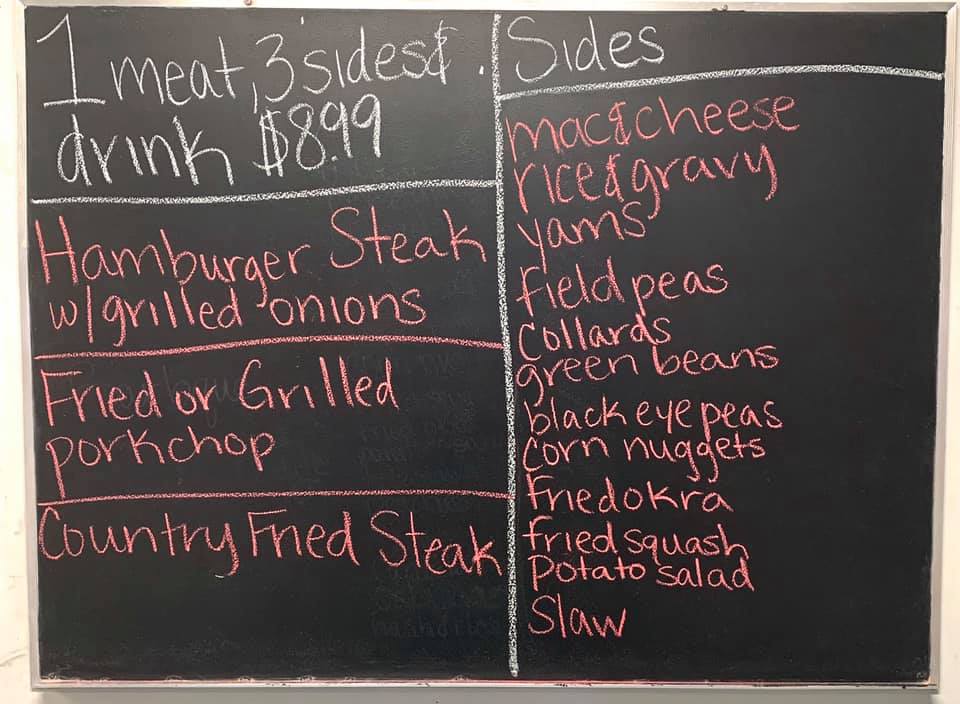 1 meat, 3 sides &
drink $8.99
Hamburger Steak
w/grilled onions
Fried or Grilled
porkchop
Country Fried Steak
Sides
mac & cheese
rice & gravy
yams
field peas
Collards
green beans
black eye peas
Corn nuggets
Fried okra
fried squash
potato salad
Slaw